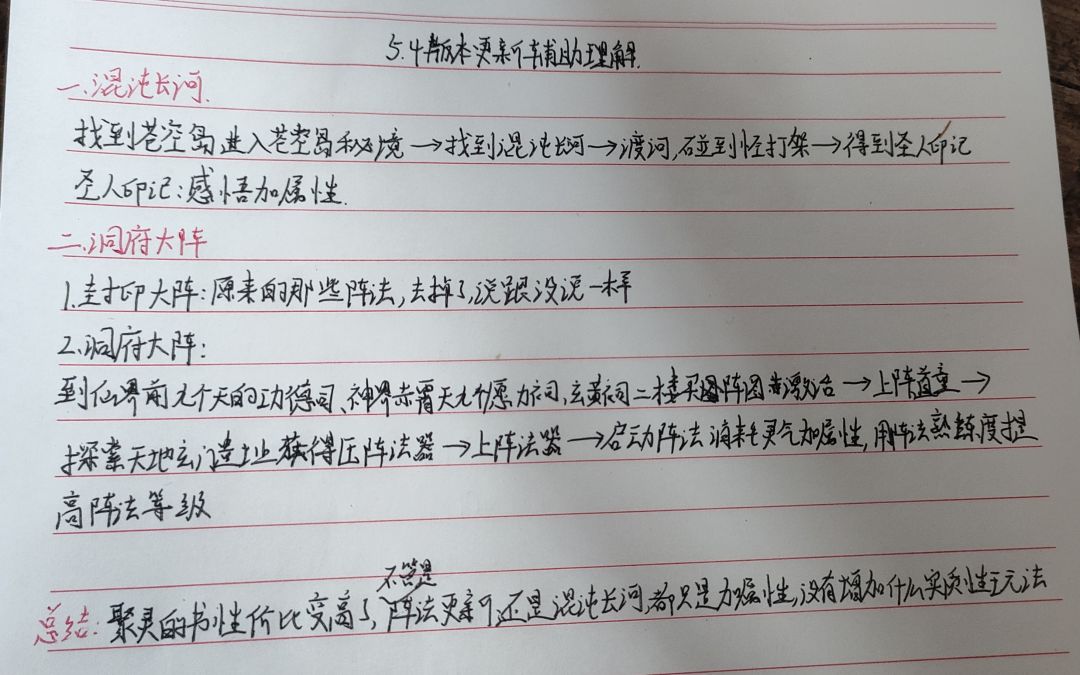 5.4版本更新辅助理解.
一.混沌长河.
找到苍空岛进入苍空岛秘境→找到混沌长河→渡河,碰到怪打架→得到圣人印记
圣人印记:感悟加属性.
二.洞府大阵
1.封印大阵:原来的那些阵法,去掉了,说跟没说一样
2.洞府大阵:
到仙界前九个天的功德司、神界赤霄天九个愿力祠,玄黄祠二楼买阵图并激活→上阵首童→
探索天地玄门遗址,获得压阵法器→上阵法器→启动阵法消耗灵气加属性,用阵法熟练度提
高阵法等级
不管是
总结:聚灵的书性价比变高了,阵法更新还是混沌长河,都只是加属性,没有增加什么实质性玩法